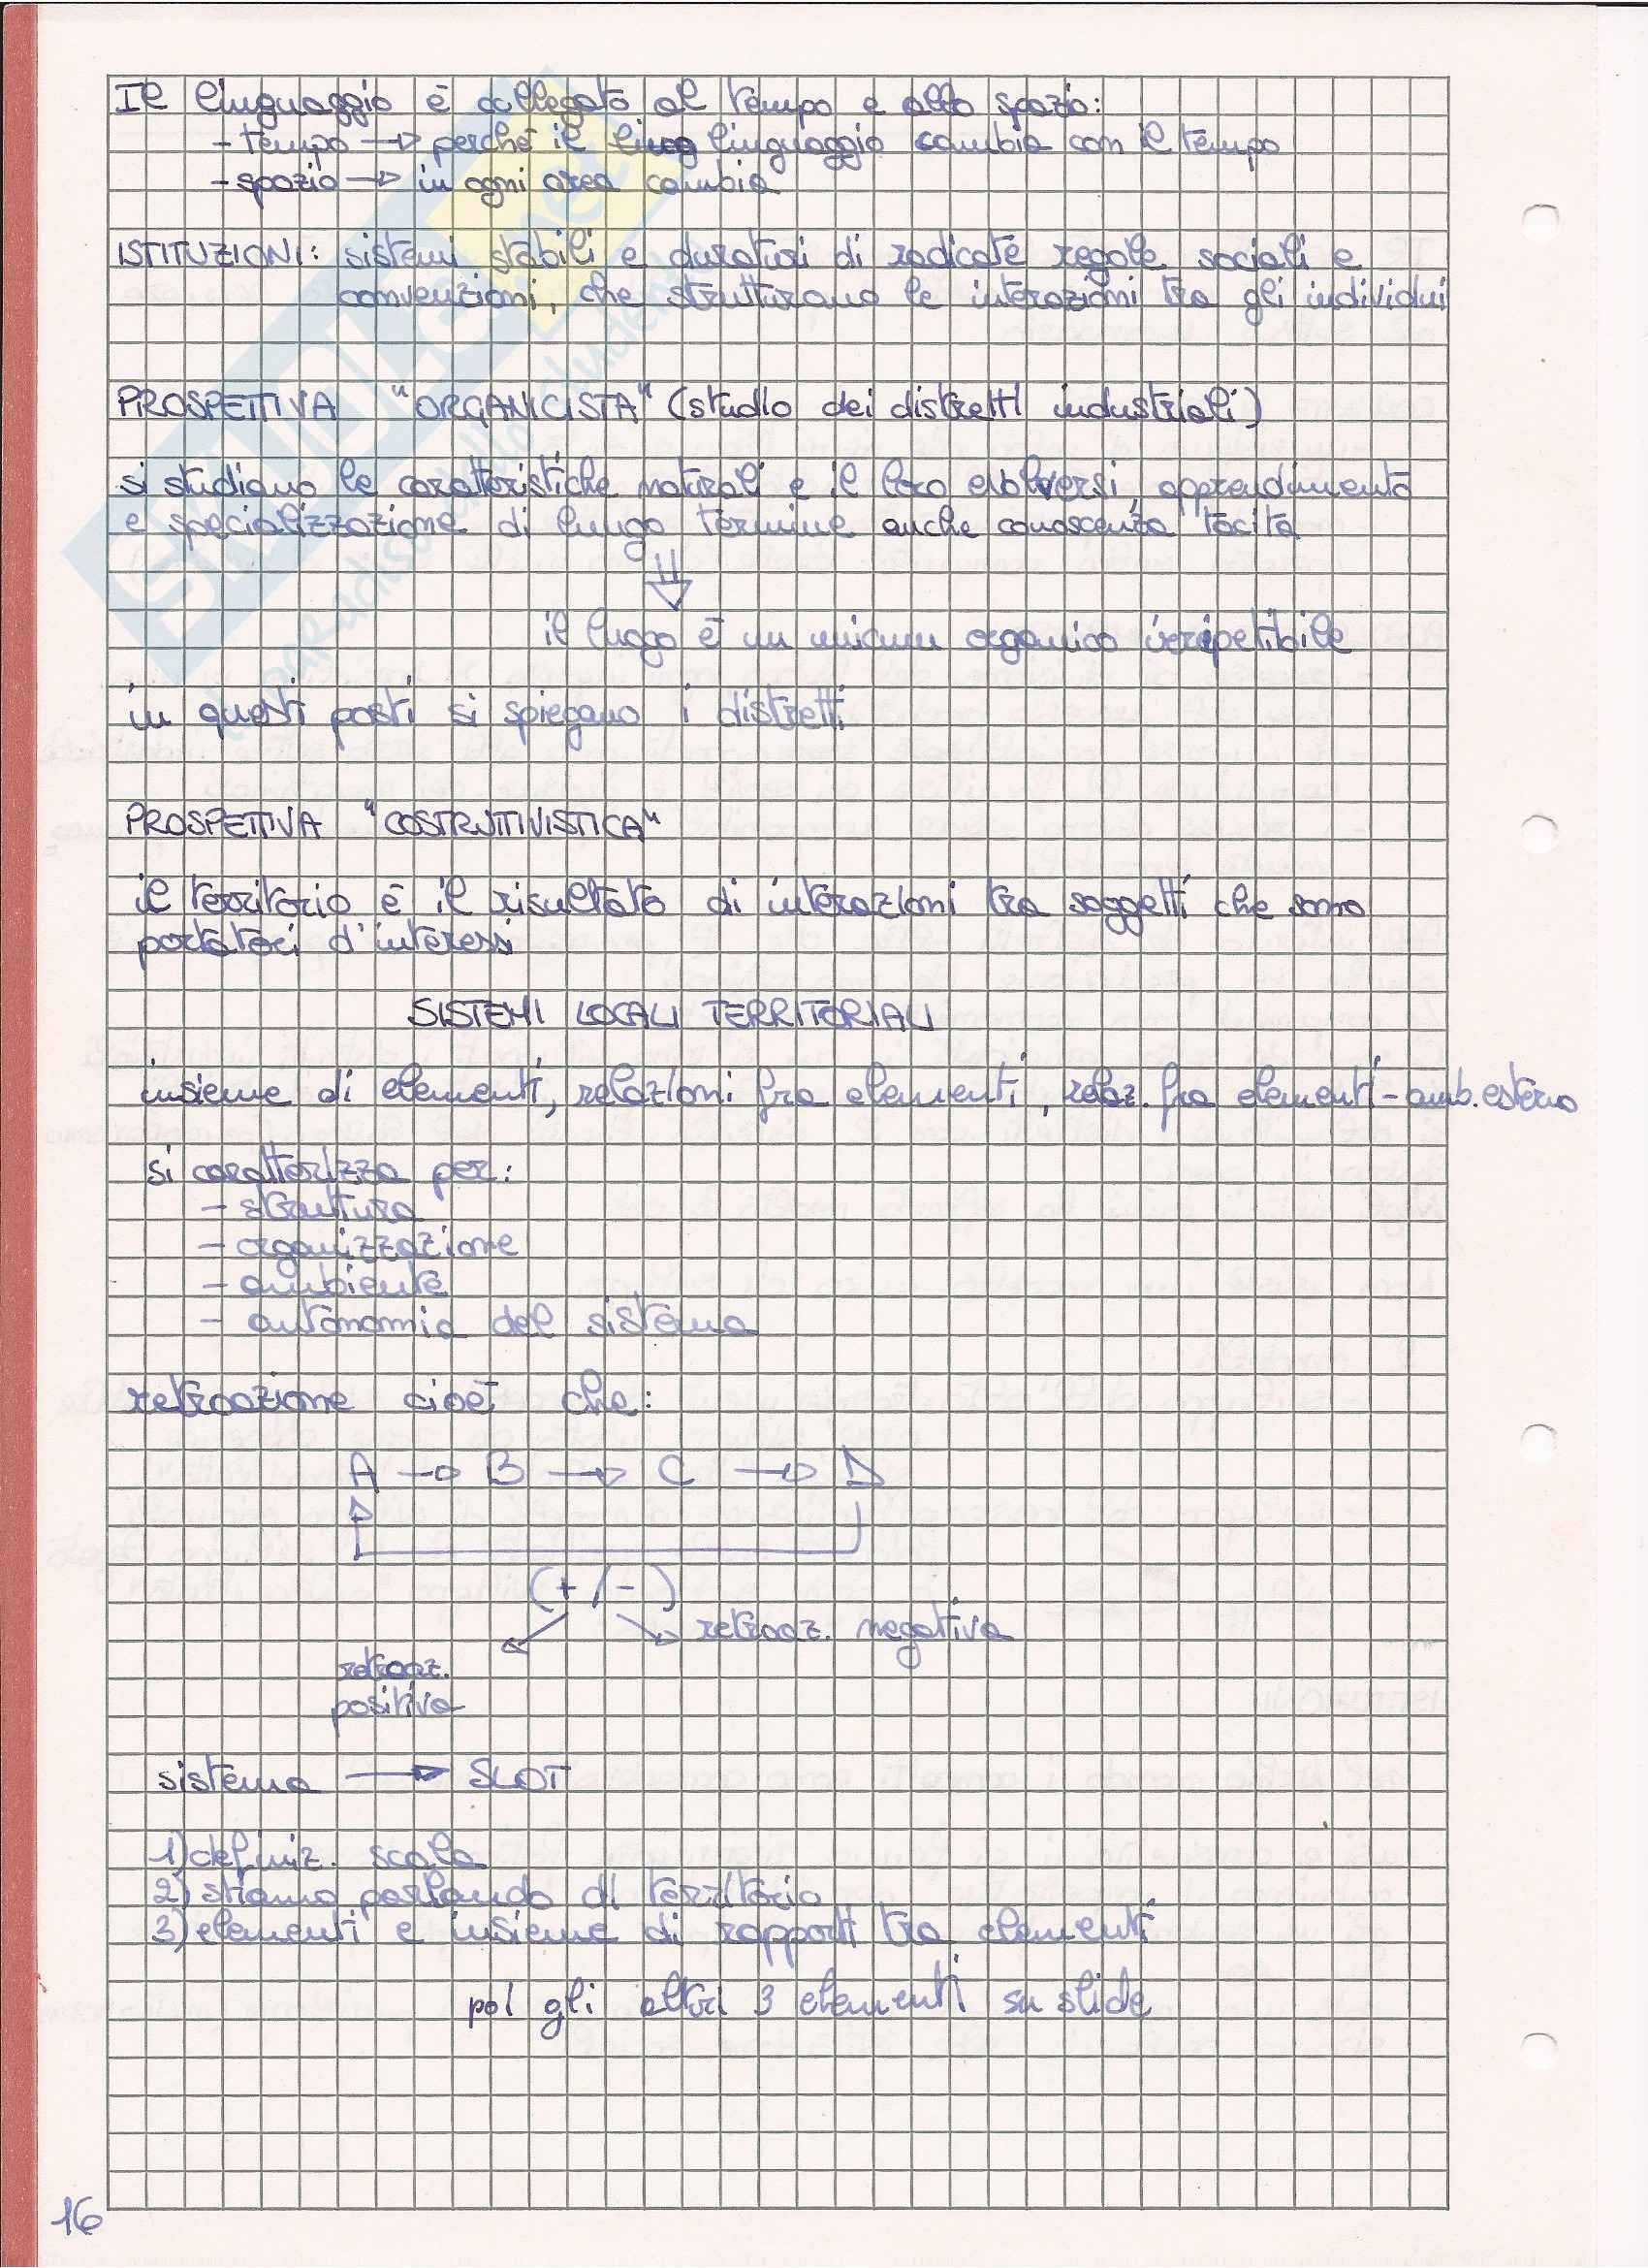 Il linguaggio è collegato al tempo e allo spazio:
- tempo → perché il linguaggio cambia con il tempo
- spazio → in ogni area cambia
ISTITUZIONI: sistemi stabili e duraturi di radicate regole sociali e
convenzioni, che strutturano le interazioni tra gli individui
PROSPETTIVA "ORGANICISTA" (studio dei distretti industriali)
si studiano le caratteristiche naturali e il loro evolversi, apprendimento
e specializzazione di lungo termine anche conoscenza tacita
⇓
il luogo è un unicum organico irripetibile
in questi posti si spiegano i distretti
PROSPETTIVA "COSTRUTTIVISTICA"
il territorio è il risultato di interazioni tra soggetti che sono
portatori d'interessi
SISTEMI LOCALI TERRITORIALI
insieme di elementi, relazioni fra elementi, relaz. fra elementi - amb. esterno
si caratterizza per:
- struttura
- organizzazione
- ambiente
- autonomia del sistema
retroazione cioè che:
A → B → C → D
(+/-)
retroaz. negativa
retroaz.
positiva
sistema → SLOT
1) definiz. scala
2) stiamo parlando di territorio
3) elementi e insieme di rapporti tra elementi
poi gli altri 3 elementi su slide
16